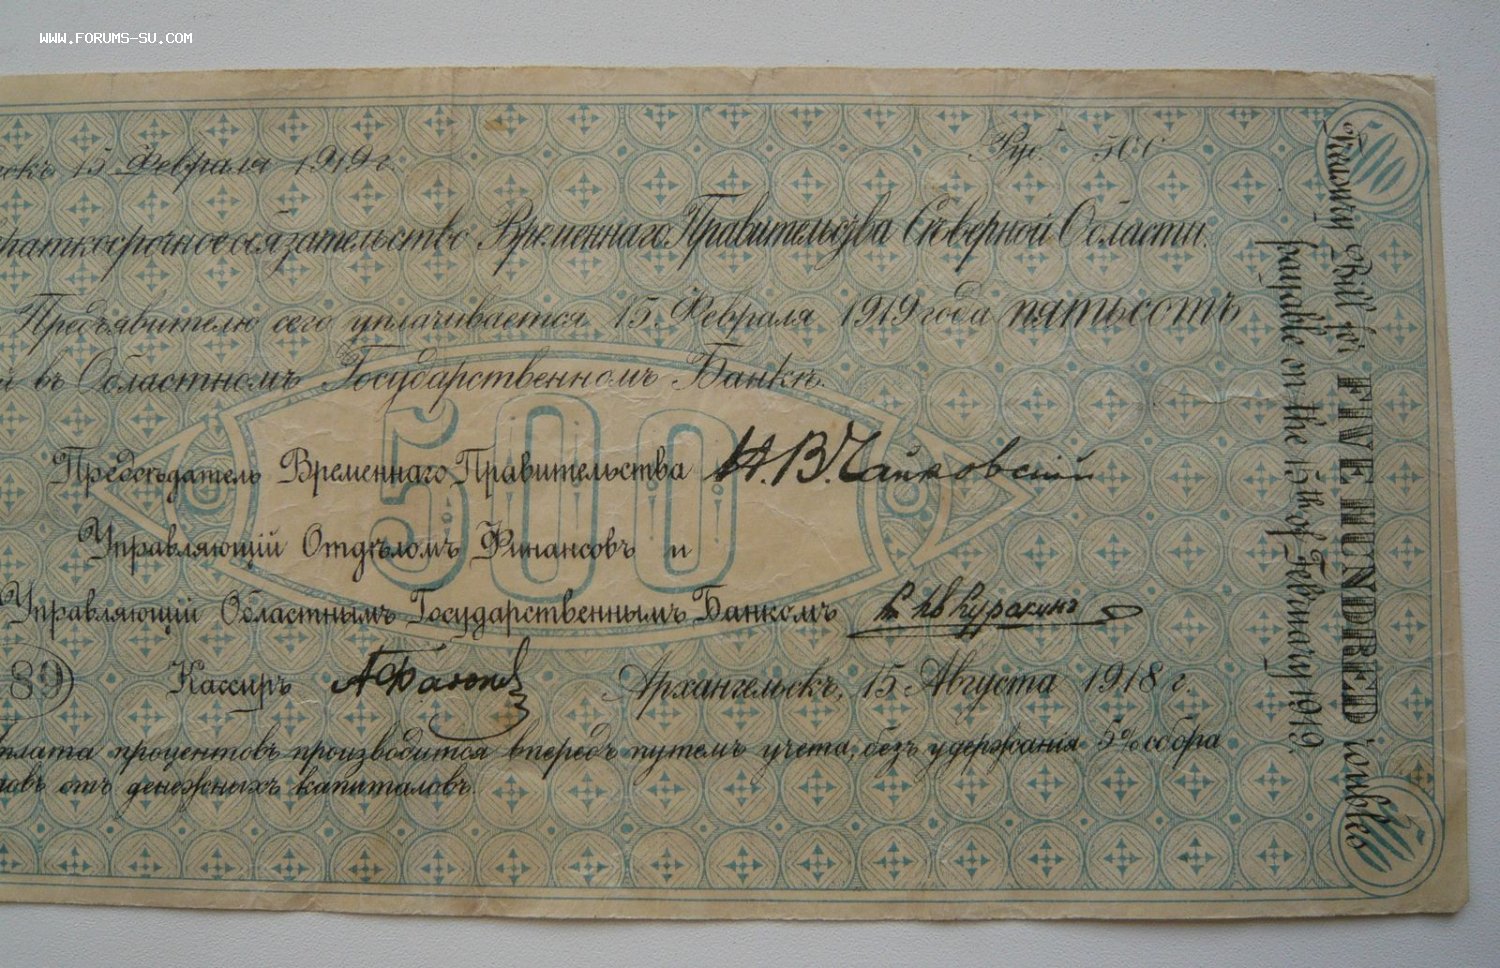 WWW.FORUMS-SU.COM
15 Февраля 1919 г.
Руб. 500
Краткосрочное обязательство Временнаго Правительства Сѣверной Области.
Предъявителю сего уплачивается 15 Февраля 1919 года пятьсотъ
й въ Областномъ Государственномъ Банкѣ.
500
Предсѣдатель Временнаго Правительства Н. В. Чайковский
Управляющій Отдѣломъ Финансовъ и
Управляющій Областнымъ Государственнымъ Банкомъ Куракинъ
89
Кассиръ
Архангельскъ, 15 Августа 1918 г.
плата процентовъ производится впередъ путемъ учета, безъ удержания 5% сбора
овъ отъ денежныхъ капиталовъ.
Treasury Bill for FIVE HUNDRED roubles
payable on the 15th of February 1919.